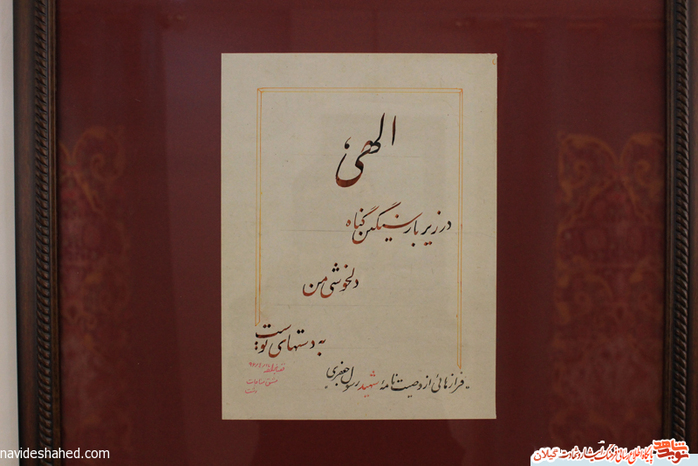 الهی،
در زیر بار سنگین گناه
دلخوشی من
به دستهای توست
فرازهائی از وصیت نامهٔ شهید رسول جعفری
navideshahed.com
نوید شاهد
پایگاه اطلاع رسانی فرهنگ ایثار و شهادت گیلان